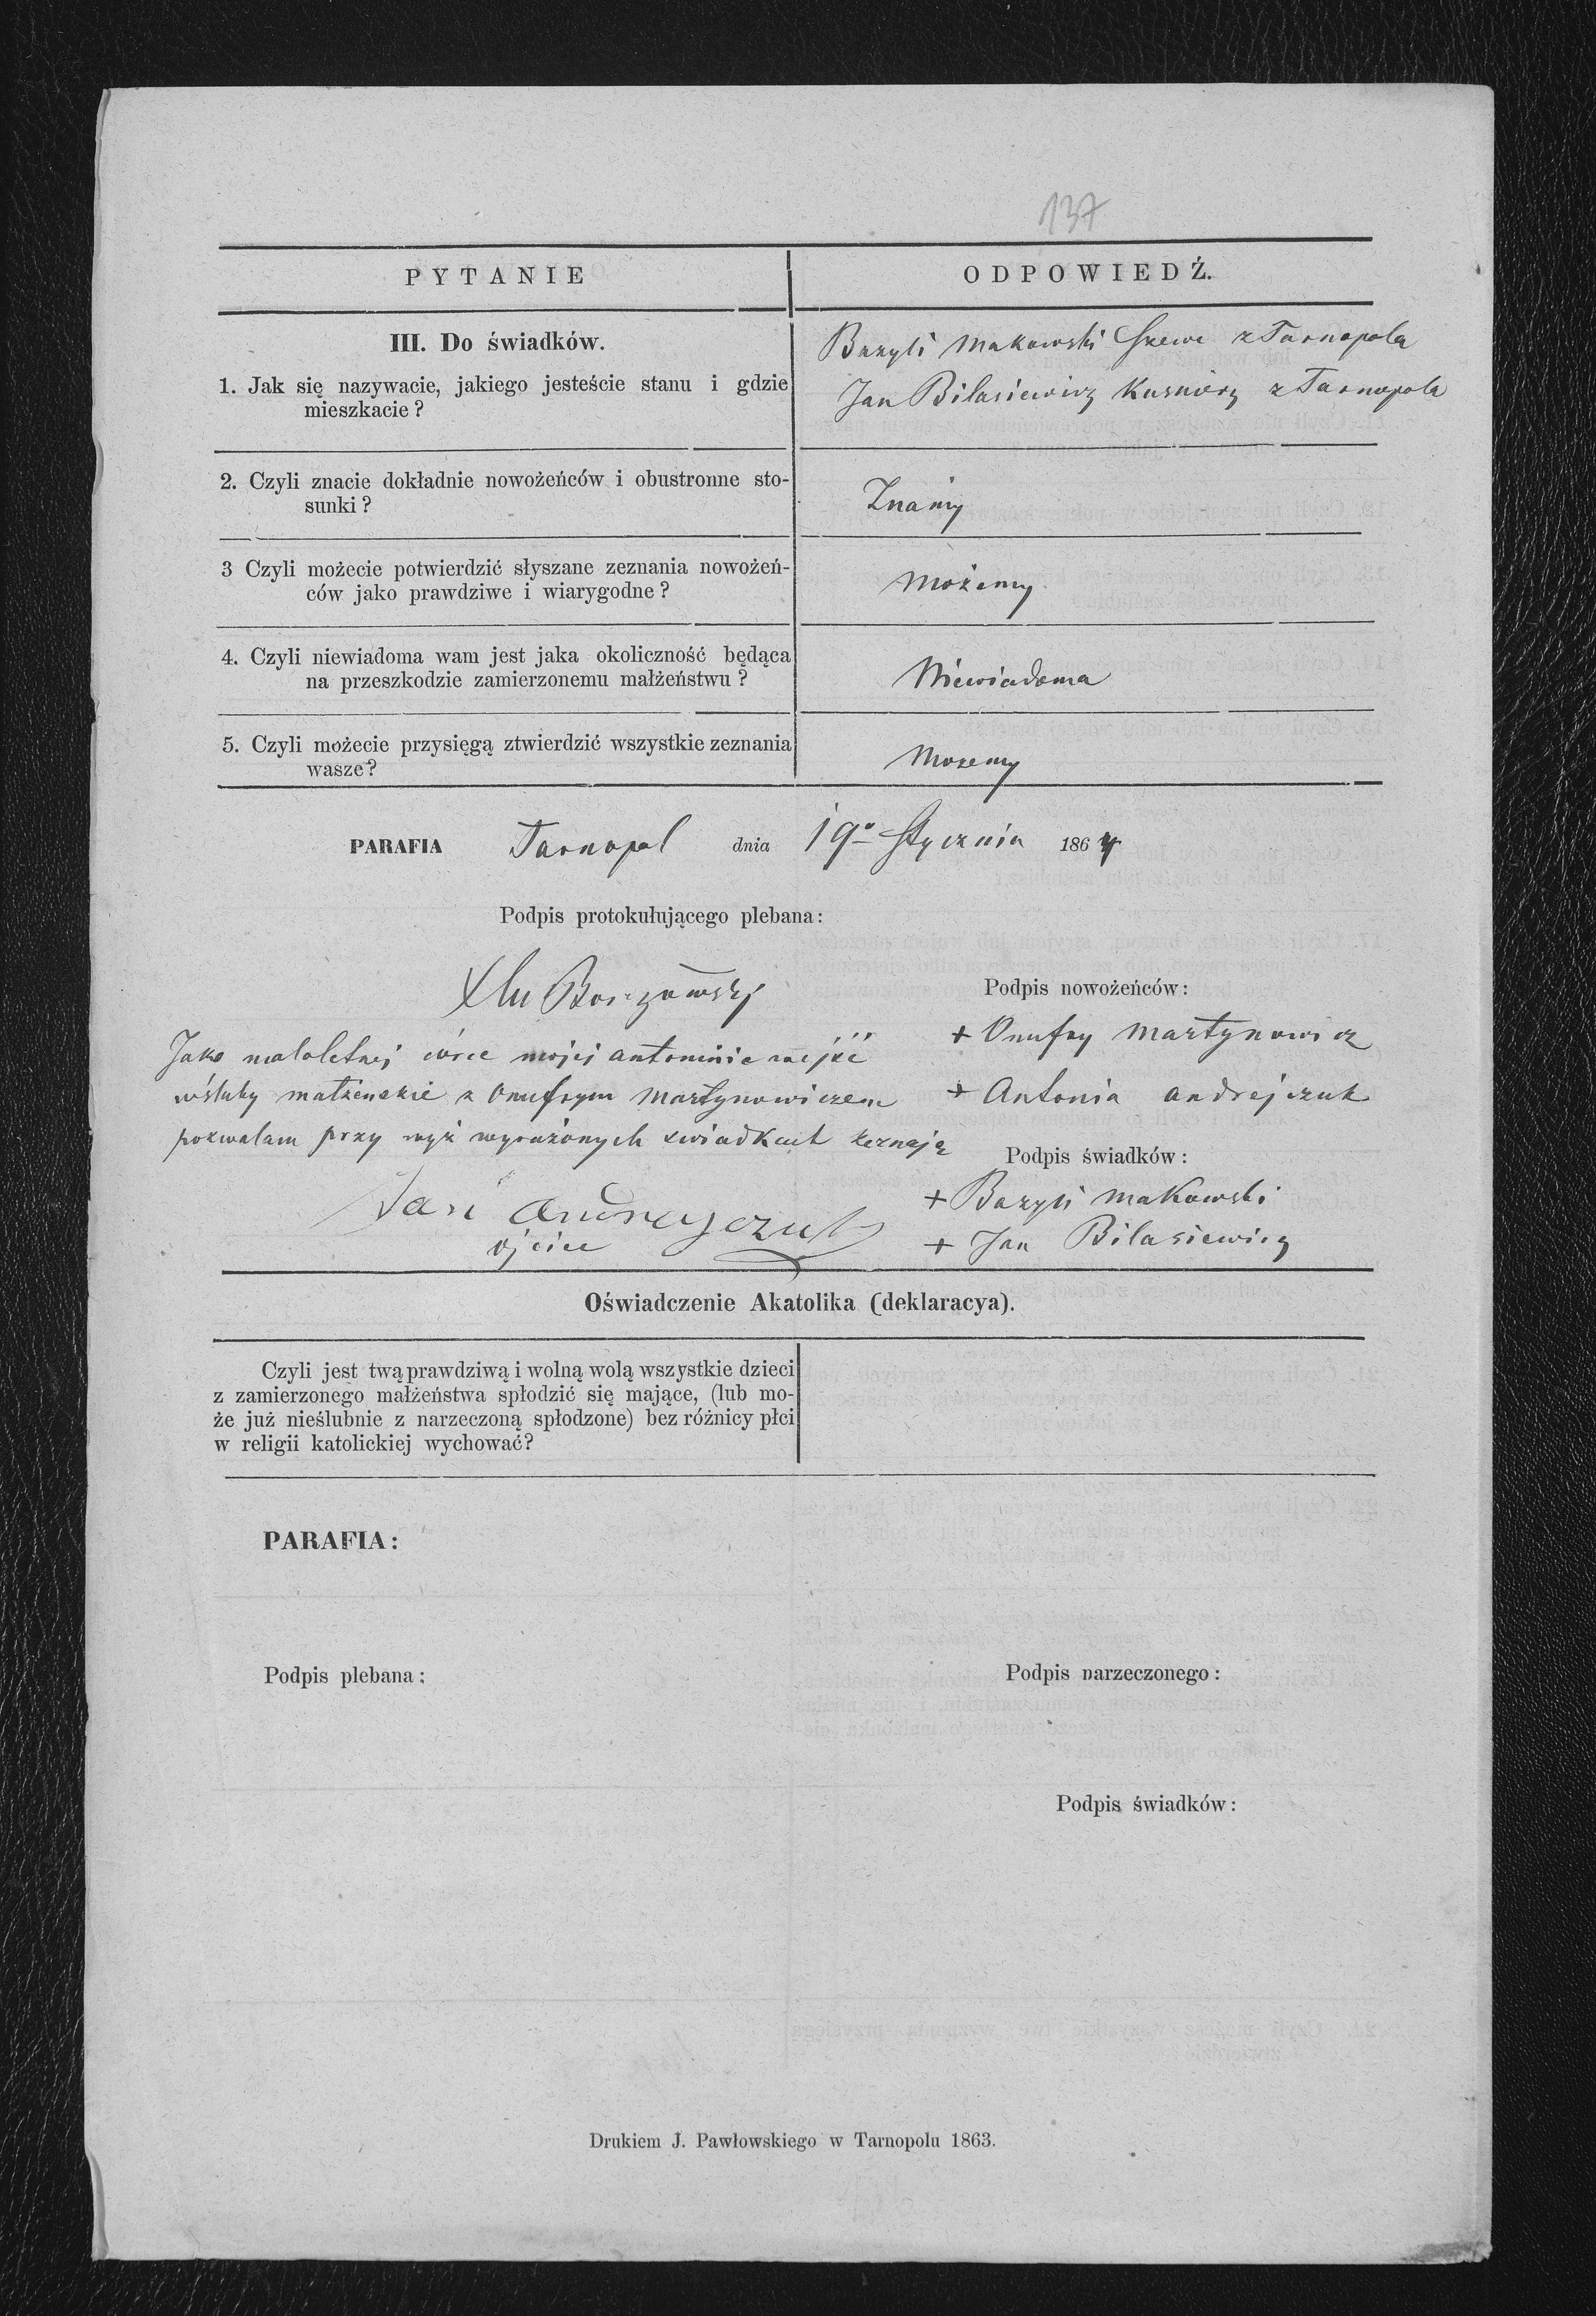 137
PYTANIE
ODPOWIEDŹ.
III. Do świadków.
1. Jak się nazywacie, jakiego jesteście stanu i gdzie
mieszkacie?
Bazyli Makowski Szewc z Tarnopola
Jan Bilasiewicz Kusnierz z Tarnopola
2. Czyli znacie dokładnie nowożeńców i obustronne sto-
sunki?
Znamy
3 Czyli możecie potwierdzić słyszane zeznania nowożeń-
ców jako prawdziwe i wiarygodne?
Możemy
4. Czyli niewiadoma wam jest jaka okoliczność będąca
na przeszkodzie zamierzonemu małżeństwu?
Niewiadoma
5. Czyli możecie przysięgą ztwierdzić wszystkie zeznania
wasze?
Mozemy
PARAFIA Tarnopol dnia 19º Stycznia 1864
Podpis protokułującego plebana:
Podpis nowożeńców:
+ Onufry Martynowicz
+ Antonia Andrejczuk
Jako maloletniej córce mojej Antoninie wejść
w śluby małżenskie z Onufrym Martynowiczem
pozwalam przy wyż wyrażonych swiadkach zeznaję
Jan Andreyczuk
ojciec
Podpis świadków:
+ Bazyli Makowski
+ Jan Bilasiewicz
Oświadczenie Akatolika (deklaracya).
Czyli jest twą prawdziwą i wolną wolą wszystkie dzieci
z zamierzonego małżeństwa spłodzić się mające, (lub mo-
że już nieślubnie z narzeczoną spłodzone) bez różnicy płci
w religii katolickiej wychować?
PARAFIA:
Podpis plebana:
Podpis narzeczonego:
Podpis świadków:
Drukiem J. Pawłowskiego w Tarnopolu 1863.